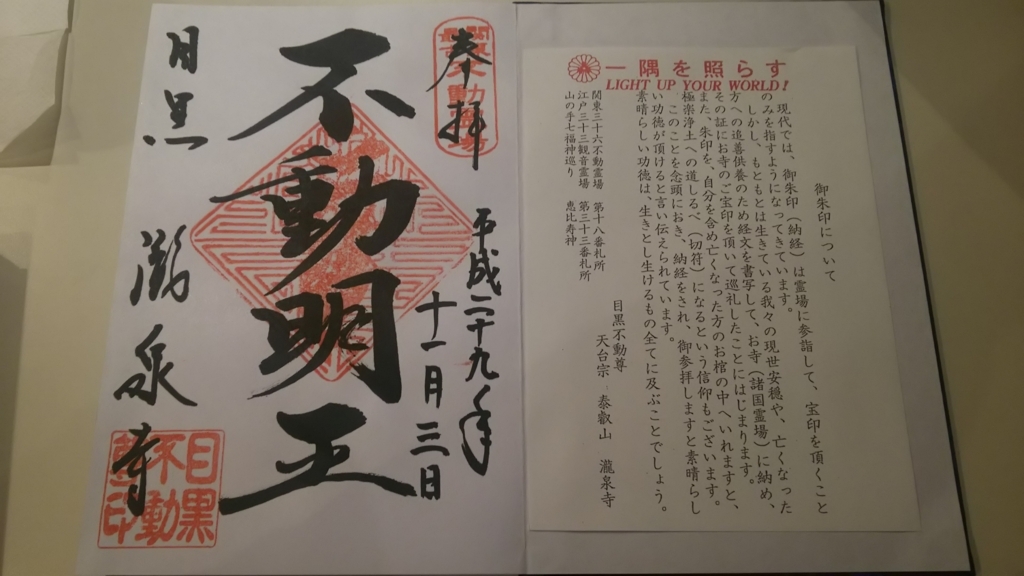 一隅を照らす
LIGHT UP YOUR WORLD!
御朱印について
現代では、御朱印（納経）は霊場に参詣して、宝印を頂くこと
のみを指すようになってきています。
しかし、もともとは生きている我々の現世安穏や、亡くなった
方への追善供養のため経文を書写して、お寺（諸国霊場）に納め、
その証にお寺のご宝印を頂いて巡礼したことにはじまります。
また、朱印を、自分を含め亡くなった方のお棺の中へいれますと、
極楽浄土への道しるべ（切符）になるという信仰もございます。
このことを念頭におき、納経をされ、御参拝しますと素晴らし
い功徳が頂けると言い伝えられています。
素晴らしい功徳は、生きとし生けるもの全てに及ぶことでしょう。
目黒不動尊
天台宗 泰叡山 瀧泉寺
関東三十六不動霊場 第十八番札所
江戸三十三観音霊場 第三十三番札所
山の手七福神巡り 恵比寿神
奉拝
平成二十九年
十一月三日
不動明王
目黒 瀧泉寺
目黒
不動